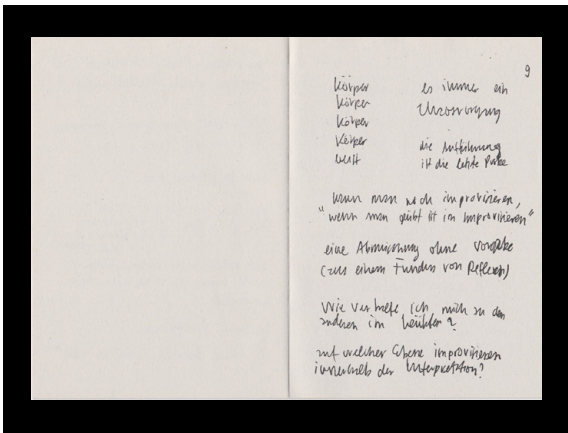 9
Körper es immer ein
Körper
Körper
Körper die Aufführung
ist die letzte Probe
kann man noch improvisieren,
"wenn man geübt ist im improvisieren"
eine ohne Vorgabe
(aus einem Fundus von Reflexen)
Wie verhalte ich mich zu den
anderen im
auf welcher Ebene improvisieren
innerhalb der Interpretation?